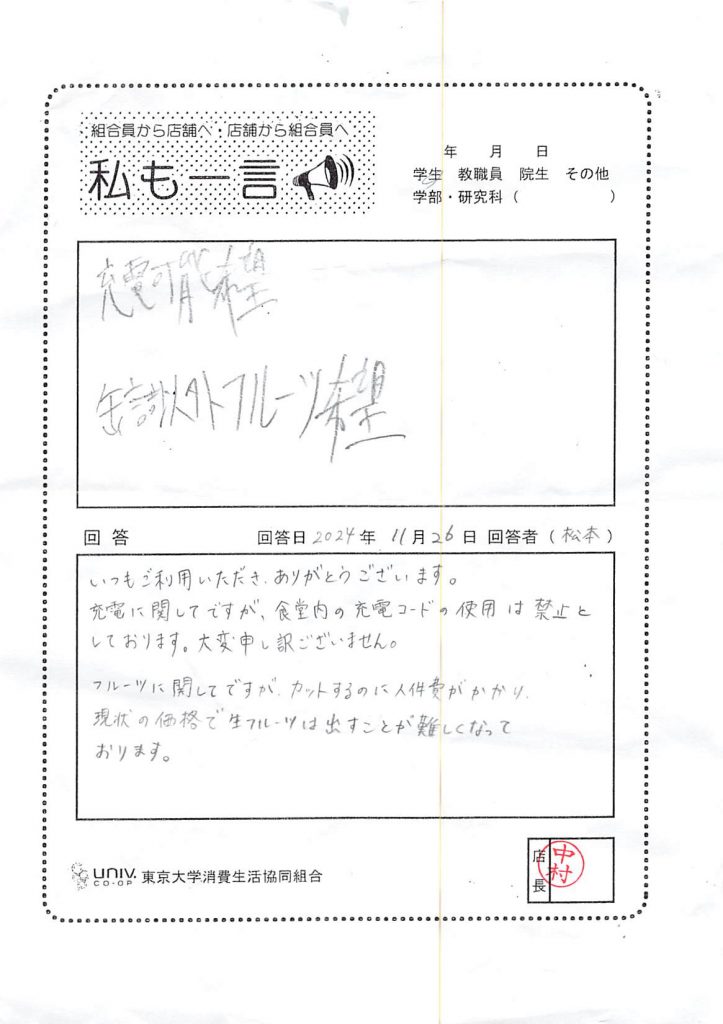 組合員から店舗へ・店舗から組合員へ
私も一言
年 月 日
学生 教職員 院生 その他
学部・研究科（ ）
充電可能希望
缶詰以外フルーツ希望
回答 回答日 2024年 11月26日 回答者（松本）
いつもご利用いただき、ありがとうございます。
充電に関してですが、食堂内の充電コードの使用は禁止と
しております。大変申し訳ございません。
フルーツに関してですが、カットするのに人件費がかかり、
現状の価格で生フルーツは出すことが難しくなって
おります。
UNIV.
CO-OP
東京大学消費生活協同組合
店長
中村